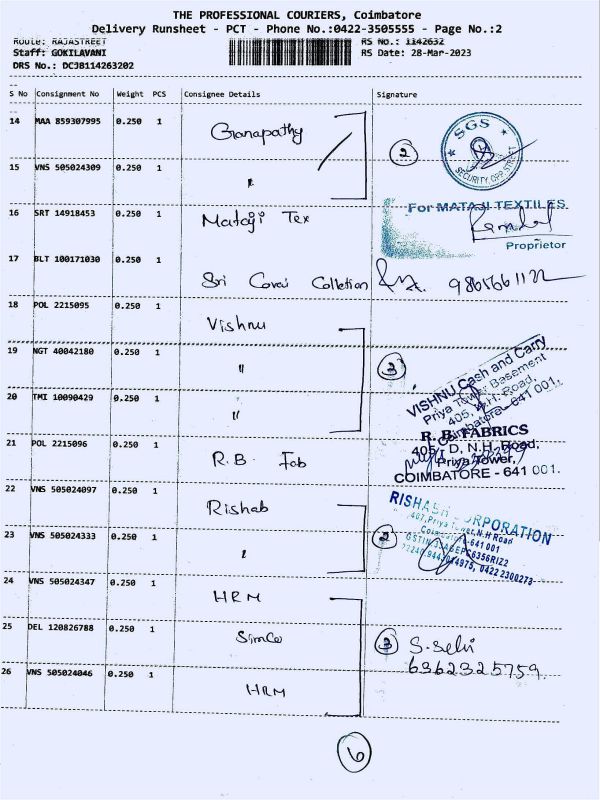 THE PROFESSIONAL COURIERS, Coimbatore
Delivery Runsheet - PCT - Phone No.:0422-3505555 - Page No.:2
Route: RAJASTREET RS No.: 1142632
Staff: GOKILAVANI RS Date: 28-Mar-2023
DRS No.: DCJ8114263202
S No Consignment No Weight PCS Consignee Details Signature
14 MAA 859307995 0.250 1 Ganapathy
2 SGS SECURITY, OPP STREET
15 VNS 505024309 0.250 1 "
16 SRT 14918453 0.250 1 Mataji Tex
For MATAJI TEXTILES
Proprietor
17 BLT 100171030 0.250 1 Sri Covai Colletion
18 POL 2215095 0.250 1 Vishnu
19 NGT 40042180 0.250 1 "
3 VISHNU Cash and Carry
Priya Tower Basement
405, N.H. Road,
Coimbatore - 641 001.
20 TMI 10090429 0.250 1 "
21 POL 2215096 0.250 1 R.B. Fab
R. B. FABRICS
405, D, N.H. Road,
Priya Tower,
COIMBATORE - 641 001.
22 VNS 505024097 0.250 1 Rishab
RISHAB CORPORATION
407, Priya Tower, N.H Road
Coimbatore-641 001
23 VNS 505024333 0.250 1 "
2
0422 2300273
24 VNS 505024347 0.250 1 HRM
25 DEL 120826788 0.250 1 Simco
3 S. Selvi
6362325759.
26 VNS 505024046 0.250 1 HRM
6